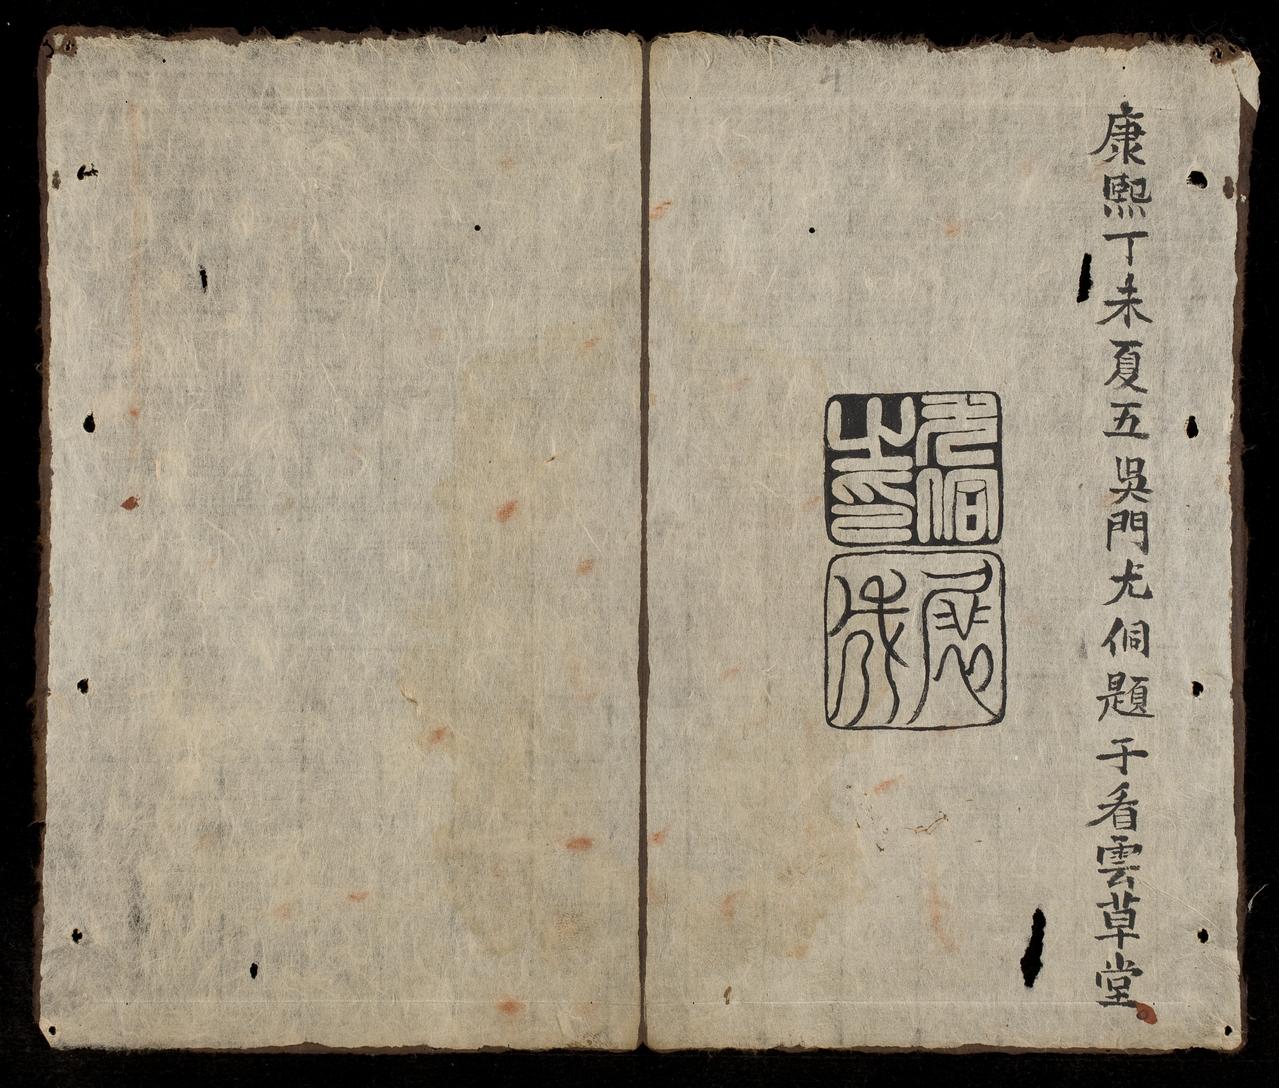 康熙丁未夏五吳門尤侗題于看雲草堂
尤侗
之印
展成